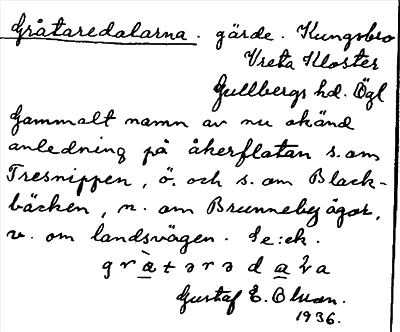 Gråtaredalarna. gärde. Kungsbro
Vreta Kloster
Gullbergs hd. Ögl
Gammalt namn av nu okänd
anledning på åkerflatan s. om
Tresnippen, ö. och s. om Black-
bäcken, n. om Brunneby ägor,
v. om landsvägen. Se: ek.
Gustaf E. Olsson.
1936.